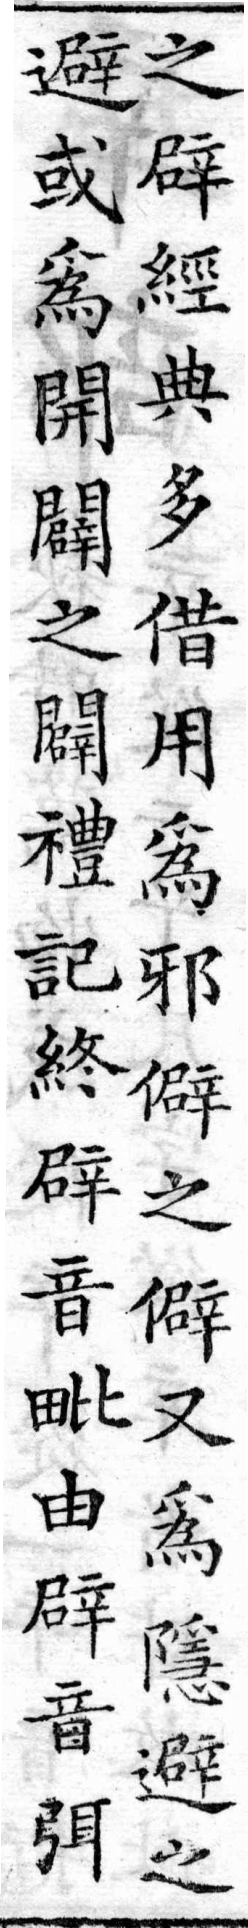 之辟經典多借用爲邪僻之僻又爲隱避之
避或爲開闢之闢禮記終辟音毗由辟音弭